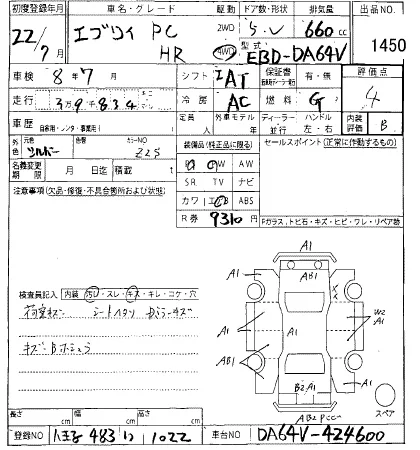 初度登録年月 車名・グレード 駆動 ドア数・形状 排気量 出品NO
22/7 エブリイ PC HR 2WD 4WD 5.V 660cc 1450
型式 EBD-DA64V
車検 8年7月 シフト IAT 保証書 有・無 評価点 4
走行 3万9千834 冷房 AC 燃料 G
車歴 自家用・レンタ・事業用 定員 人 外車モデル 年 ディーラー・並行 ハンドル 左・右 内装評価 B
外色 元色 シルバー 色替 カラーNO Z2S 装備品(純正品に限る) セールスポイント(正常に作動するもの)
名義変更期限 月 日迄 積載 t SR TV ナビ
注意事項(欠品・修復・不具合箇所および状態) カワ エB ABS
R券 9310円
Fガラス,トビ石・キズ・ヒビ・ワレ・リペア跡
A1
A1 A1
A1 A1 W2 A1
AB1 AB1
B2 A1
AB2 PCC
スペア
検査員記入 内装 汚れ・スレ・キズ・キレ・コゲ・穴
荷室キズ シートヘタリ
長さ cm 幅 cm 高さ cm
登録NO 八王子 483 1022 車台NO DA64V-424600